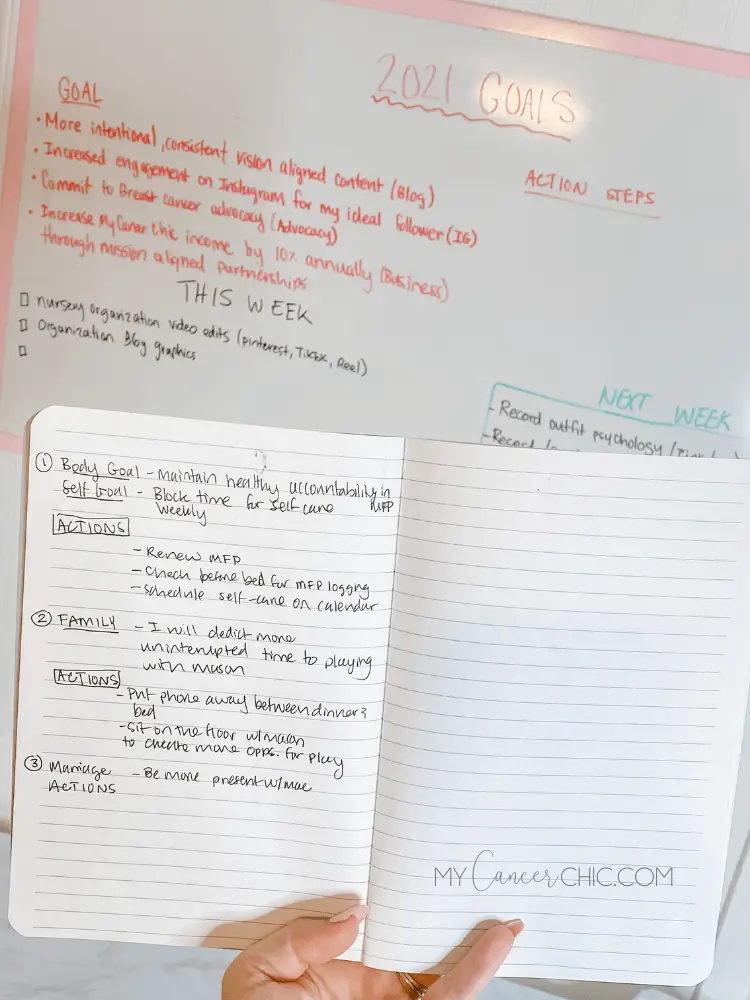 2021 GOALS
GOAL
• More intentional, consistent vision aligned content (Blog)
• Increased engagement on Instagram for my ideal follower (IG)
• Commit to Breast cancer advocacy (Advocacy)
• Increase MyCancer Chic income by 10% annually (Business)
through mission aligned partnerships
ACTION STEPS
THIS WEEK
□ nursery organization video edits (pinterest, TikTok, Reel)
□ Organization Blog graphics
□
NEXT WEEK
- Record outfit psychology
- Record
① Body Goal - Maintain healthy accountability in
MFP
Self Goal - Block time for self care
weekly
ACTIONS
- Renew MFP
- Check before bed for MFP logging
- Schedule self-care on calendar
② FAMILY - I will dedict more
uninterupted time to playing
with mason
ACTIONS
- Put phone away between dinner &
bed
- Sit on the floor w/mason
to create more opps. for play
③ Marriage - Be more present w/mac
ACTIONS
MY Cancer CHIC.COM